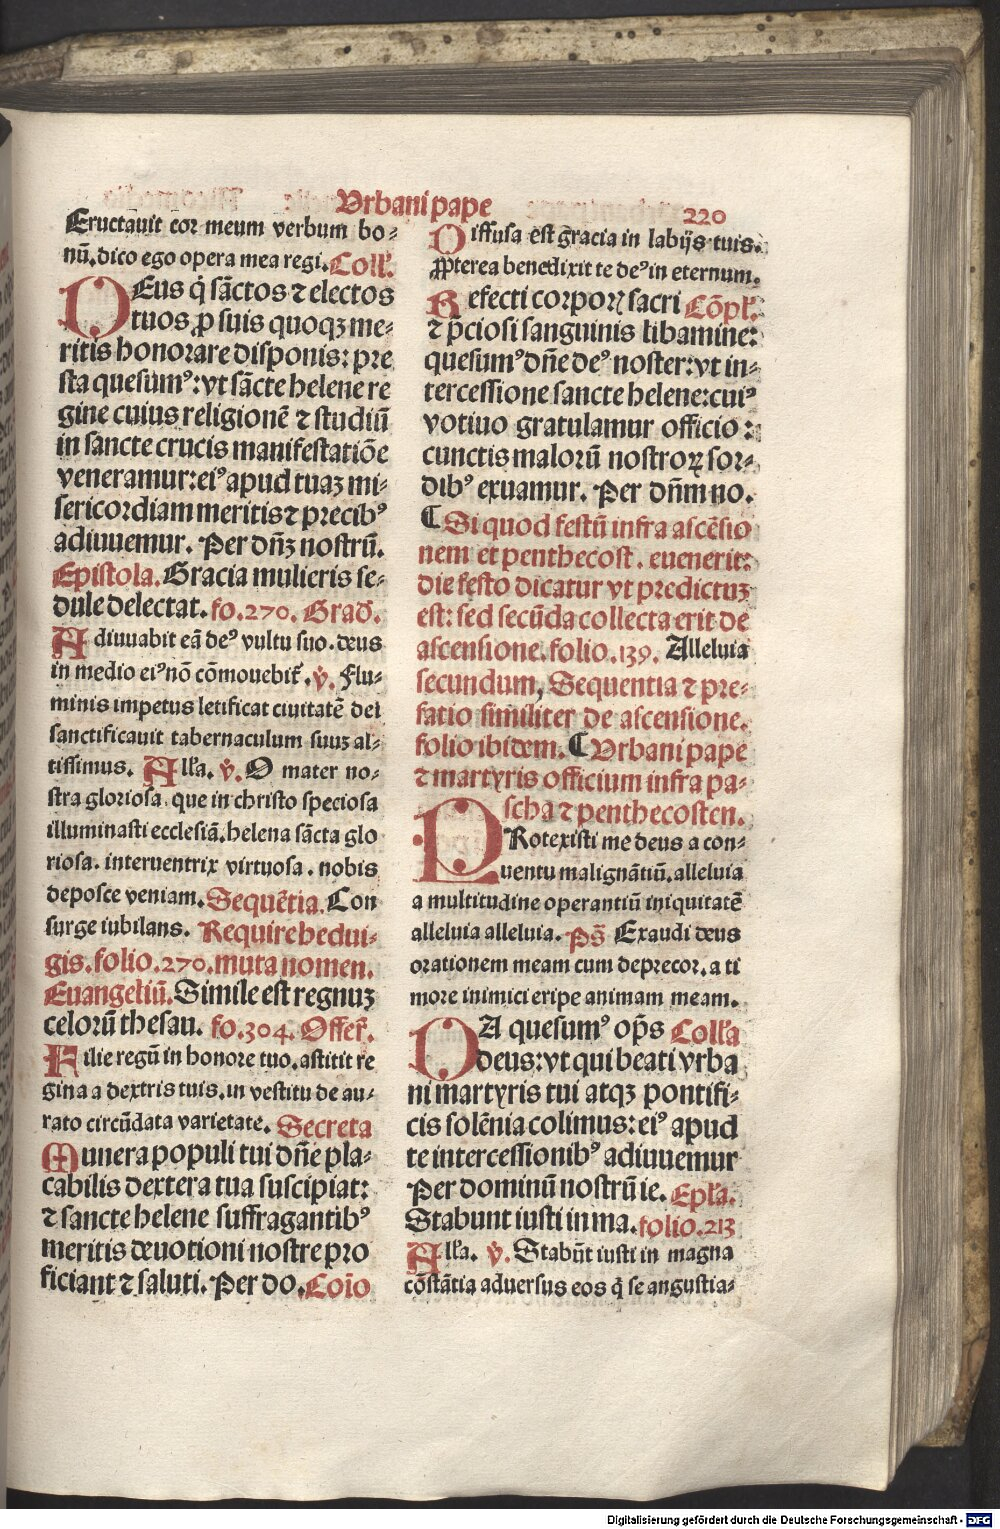 Vrbani pape
220
Eructauit cor meum verbum bo⸗
nū.dico ego opera mea regi.Coll'.
DEus q̇ sāctos ⁊ electos
tuos ꝓ suis quoqꝫ me⸗
ritis honorare disponis: pre
sta quesumꝰ: vt sācte helene re
gine cuius religionē ⁊ studiū
in sancte crucis manifestatiōe
veneramur: eiꝰ apud tuaꝫ mi⸗
sericordiam meritis ⁊ precibꝰ
adiuuemur. Per dn̄ꝫ nostrū.
Epistola. Gracia mulieris se⸗
dule delectat. fo.270. Grad'.
Adiuuabit eā deꝰ vultu suo.deus
in medio eiꝰ nō cōmouebit᷑. v̇. Flu⸗
minis impetus letificat ciuitatē dei
sanctificauit tabernaculum suuꝫ al⸗
tissimus. All'a. v̇. O mater no⸗
stra gloriosa.que in christo speciosa
illuminasti ecclesiā.helena sācta glo
riosa. interuentrix virtuosa. nobis
deposce veniam. Sequētia. Con
surge iubilans. Require hedui⸗
gis.folio.270.muta nomen.
Euangeliū. Simile est regnuꝫ
celorū thesau. fo.304. Offer̄.
Filie regū in honore tuo.astitit re
gina a dextris tuis.in vestitu de au⸗
rato circūdata varietate. Secreta
Munera populi tui dn̄e pla⸗
cabilis dextera tua suscipiat:
⁊ sancte helene suffragantibꝰ
meritis deuotioni nostre pro
ficiant ⁊ saluti. Per do. Coīo
Diffusa est gracia in labijs tuis.
ꝓpterea benedixit te deꝰ in eternum.
Refecti corporꝝ sacri Cōpl'.
⁊ p̄ciosi sanguinis libamine:
quesumꝰ dn̄e deꝰ noster: vt in⸗
tercessione sancte helene: cuiꝰ
votiuo gratulamur officio:
cunctis malorū nostrorꝝ sor⸗
dibꝰ exuamur. Per dn̄m no.
¶ Si quod festū infra ascēsio
nem et penthecost. euenerit:
die festo dicatur vt predictuꝫ
est: sed secūda collecta erit de
ascensione.folio.139. Alleluia
secundum, Sequentia ⁊ pre⸗
fatio similiter de ascensione.
folio ibidem. ¶ Vrbani pape
⁊ martyris officium infra pa⸗
scha ⁊ penthecosten.
PRotexisti me deus a con⸗
uentu malignātiū.alleluia
a multitudine operantiū iniquitatē
alleluia alleluia. Ps̄ Exaudi deus
orationem meam cum deprecor.a ti
more inimici eripe animam meam.
DA quesumꝰ op̄s Coll'a
deus: vt qui beati vrba
ni martyris tui atqꝫ pontifi⸗
cis solēnia colimus: eiꝰ apud
te intercessionibꝰ adiuuemur
Per dominū nostrū ie. Epl'a.
Stabunt iusti in ma. folio.213
All'a. v̇. Stabūt iusti in magna
cōstātia aduersus eos q̇ se angustia⸗
Digitalisierung gefördert durch die Deutsche Forschungsgemeinschaft - DFG